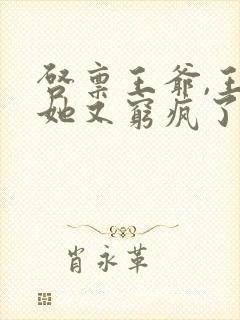 启禀王爷,王
她又窮疯了
肖永革